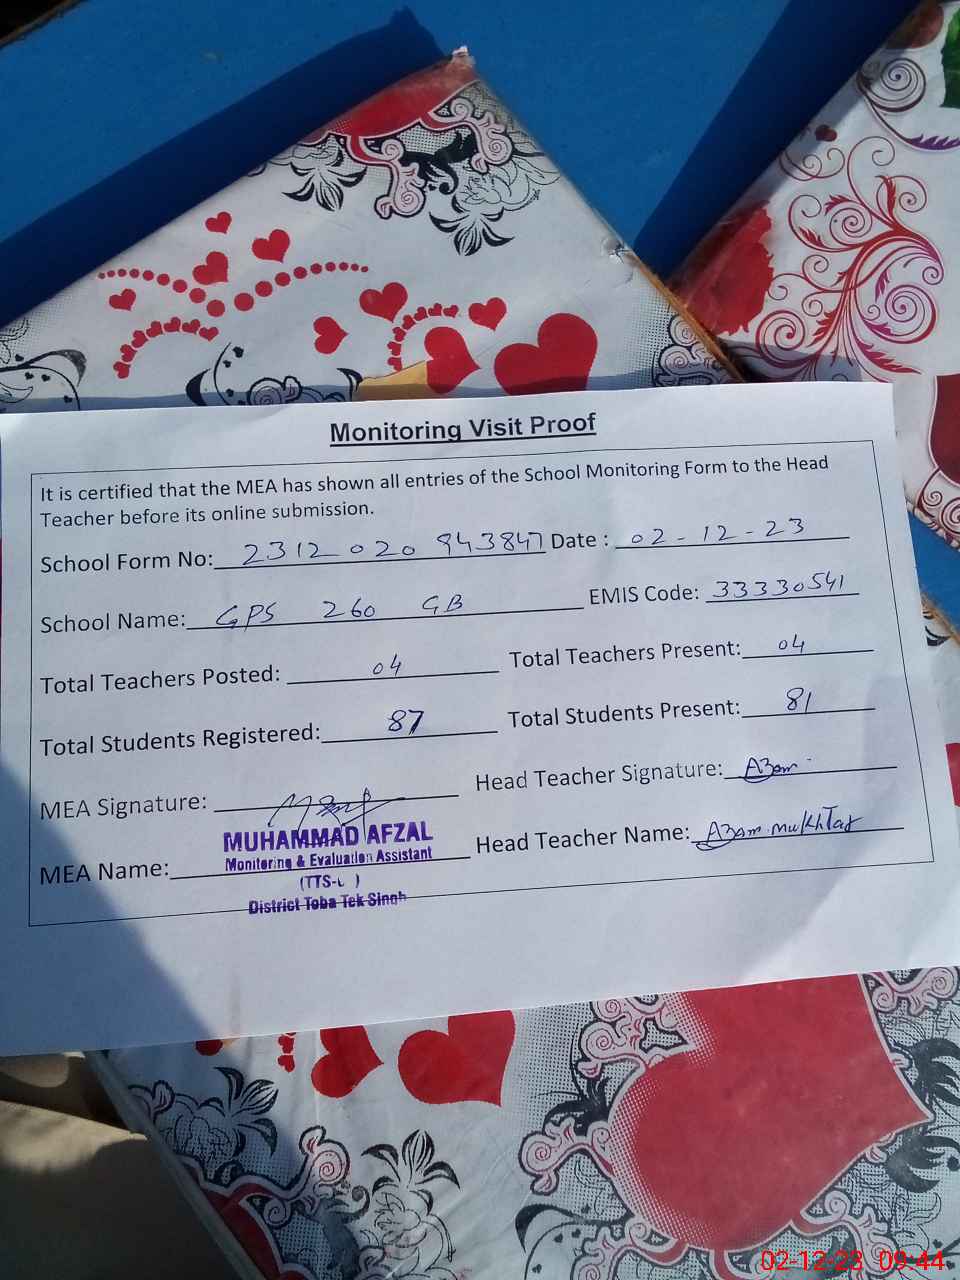 Monitoring Visit Proof
It is certified that the MEA has shown all entries of the School Monitoring Form to the Head
Teacher before its online submission.
School Form No: 2312020943847 Date : 02-12-23
School Name: GPS 260 GB EMIS Code: 33330541
Total Teachers Posted: 04 Total Teachers Present: 04
Total Students Registered: 87 Total Students Present: 81
MEA Signature: Head Teacher Signature: Azam
MEA Name: MUHAMMAD AFZAL Head Teacher Name: Azam Mukhtar
Monitoring & Evaluation Assistant
District Toba Tek Singh
02-12-23 09:44